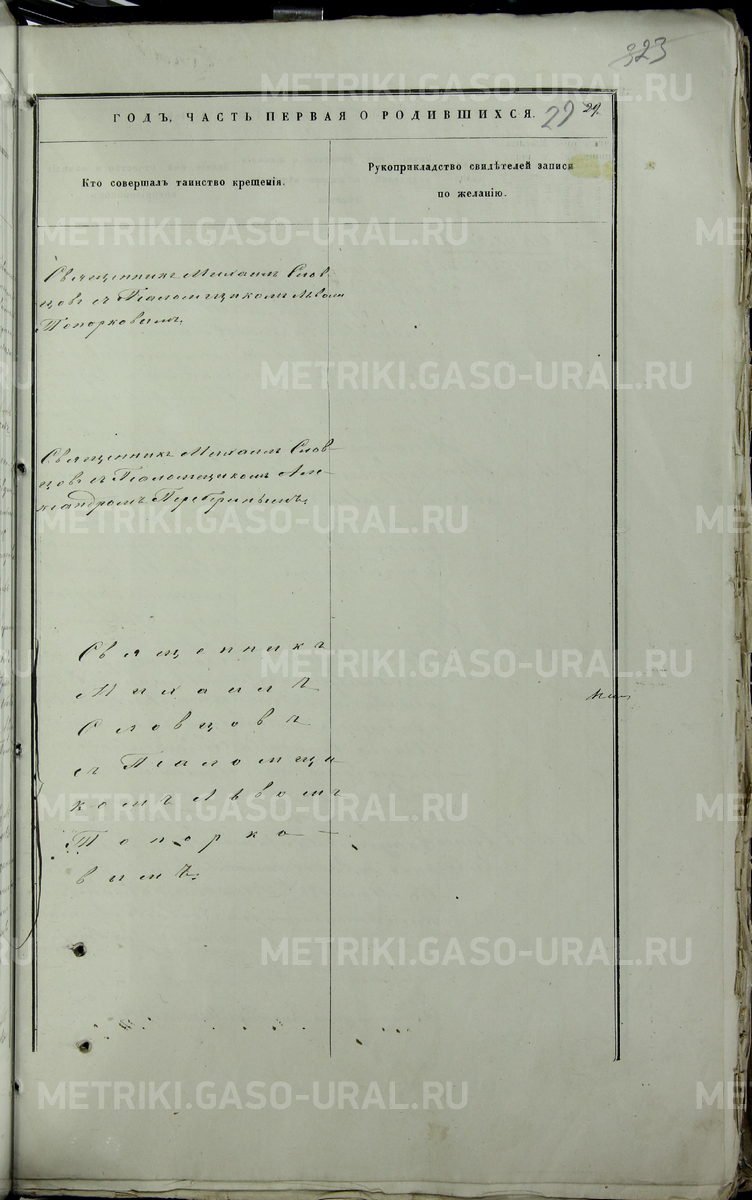 323
ГОДЪ, ЧАСТЬ ПЕРВАЯ О РОДИВШИХСЯ.
29 29.
Кто совершалъ таинство крещенія.
Рукоприкладство свидѣтелей записи
по желанію.
Священникъ Михаилъ Слов-
цовъ съ Псаломщикомъ Львомъ
Топорковымъ.
Священникъ Михаилъ Слов-
цовъ съ Псаломщикомъ Але-
ксандромъ
Священникъ
Михаилъ
Словцовъ
съ Псаломщи
комъ Львомъ
Топорко-
вымъ.
METRIKI.GASO-URAL.RU
METRIKI.GASO-URAL.RU
METRIKI.GASO-URAL.RU
METRIKI.GASO-URAL.RU
METRIKI.GASO-URAL.RU
METRIKI.GASO-URAL.RU
METRIKI.GASO-URAL.RU
METRIKI.GASO-URAL.RU